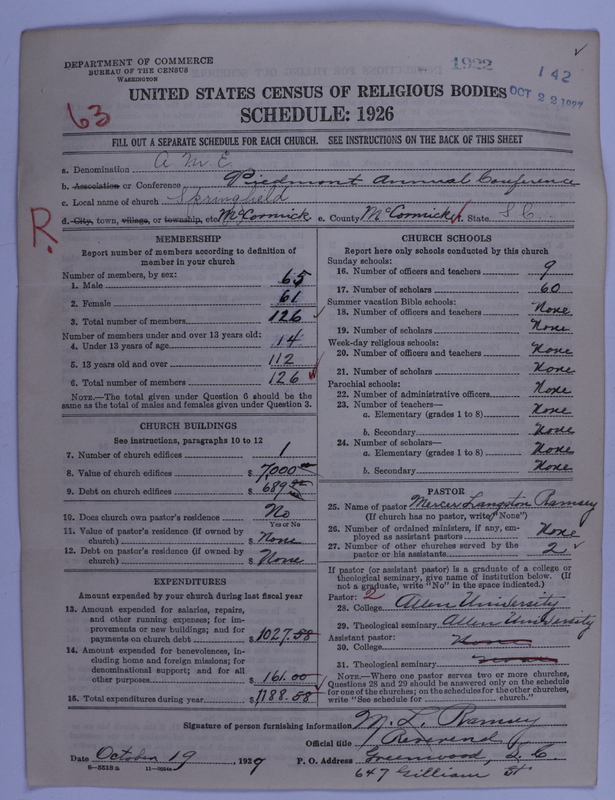 DEPARTMENT OF COMMERCE
BUREAU OF THE CENSUS
WASHINGTON
1922
142
OCT 22
UNITED STATES CENSUS OF RELIGIOUS BODIES
SCHEDULE: 1926
63
FILL OUT A SEPARATE SCHEDULE FOR EACH CHURCH. SEE INSTRUCTIONS ON THE BACK OF THIS SHEET
a. Denomination A. M. E.
b. Association or Conference Piedmont Annual Conference
c. Local name of church Springfield
d. City, town, village, or township, etc McCormick e. County McCormick f. State S C
R.
MEMBERSHIP
Report number of members according to definition of
member in your church
Number of members, by sex:
1. Male 65
2. Female 61
3. Total number of members 126
Number of members under and over 13 years old:
4. Under 13 years of age 14
5. 13 years old and over 112
6. Total number of members 126
NOTE.—The total given under Question 6 should be the
same as the total of males and females given under Question 3.
CHURCH BUILDINGS
See instructions, paragraphs 10 to 12
7. Number of church edifices 1
8. Value of church edifices $ 7000.00
9. Debt on church edifices $ 689
10. Does church own pastor's residence No
Yes or No
11. Value of pastor's residence (if owned by
church) $ None
12. Debt on pastor's residence (if owned by
church) $ None
EXPENDITURES
Amount expended by your church during last fiscal year
13. Amount expended for salaries, repairs,
and other running expenses; for im-
provements or new buildings; and for
payments on church debt $ 1027.58
14. Amount expended for benevolences, in-
cluding home and foreign missions; for
denominational support; and for all
other purposes $ 161.00
15. Total expenditures during year $ 1188.58
CHURCH SCHOOLS
Report here only schools conducted by this church
Sunday schools:
16. Number of officers and teachers 9
17. Number of scholars 60
Summer vacation Bible schools:
18. Number of officers and teachers None
19. Number of scholars None
Week-day religious schools:
20. Number of officers and teachers None
21. Number of scholars None
Parochial schools:
22. Number of administrative officers None
23. Number of teachers—
a. Elementary (grades 1 to 8) None
b. Secondary None
24. Number of scholars—
a. Elementary (grades 1 to 8) None
b. Secondary None
PASTOR
25. Name of pastor Mercer Langston Ramsey
(If church has no pastor, write "None")
26. Number of ordained ministers, if any, em-
ployed as assistant pastors None
27. Number of other churches served by the
pastor or his assistants 2
If pastor (or assistant pastor) is a graduate of a college or
theological seminary, give name of institution below. (If
not a graduate, write "No" in the space indicated.)
Pastor: 2
28. College Allen University
29. Theological seminary Allen University
Assistant pastor:
30. College None
31. Theological seminary None
NOTE.—Where one pastor serves two or more churches,
Questions 28 and 29 should be answered only on the schedule
for one of the churches; on the schedules for the other churches,
write "See schedule for church."
Signature of person furnishing information M. L. Ramsey
Official title Reverend
Date October 19, 1929 P. O. Address Greenwood, S. C.
647 Gilliam St